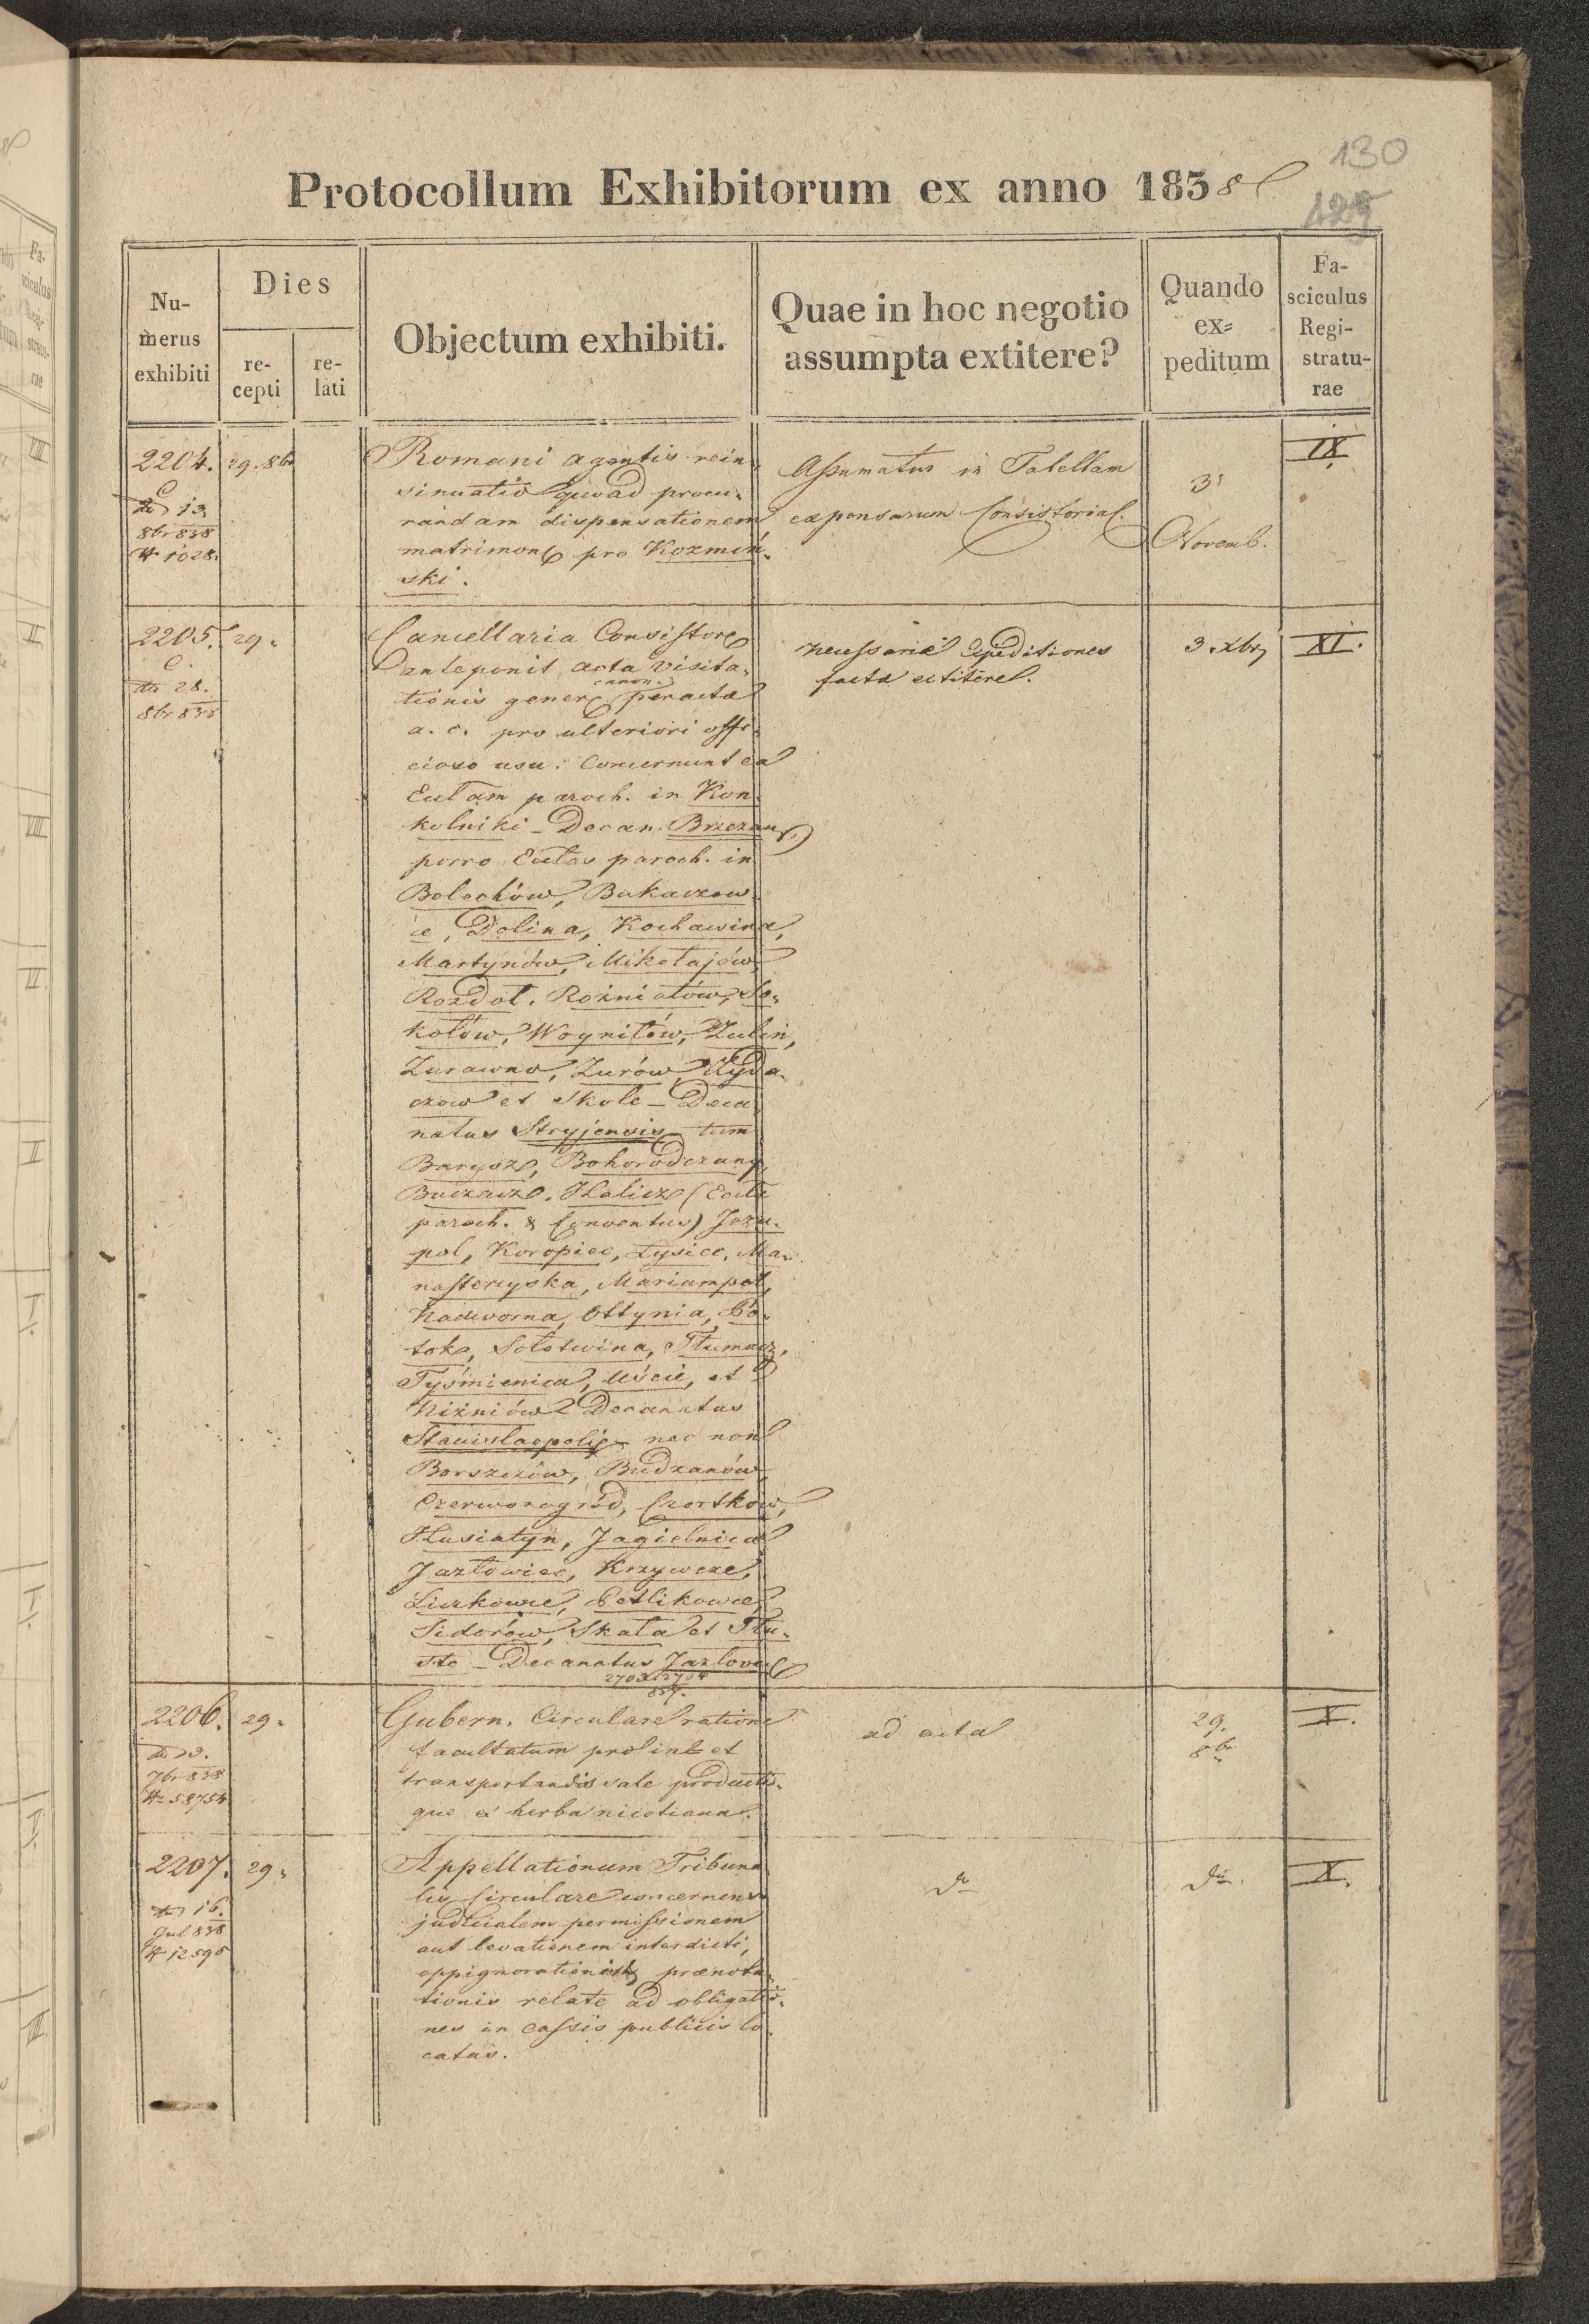 130
129
Protocollum Exhibitorum ex anno 1838
Numerus exhibiti
Dies
recepti
relati
Objectum exhibiti.
Quae in hoc negotio
assumpta extitere?
Quando
ex=
peditum
Fa-
sciculus
Regi-
stratu-
rae
2204. 29. 8b
13
8br 838
№ 1028.
Romani agentis rein
sinuatio quoad procu-
randam dispensationem
matrimon pro Kozmiń-
ski.
Assumatur in Tabellam
expensarum Consistorial.
31
Novemb.
IX
2205. 29.
28.
8br 838
Cancellaria Consistor
anteponit acta visita-
canon.
tionis gener peractae
a. c. pro ulteriori offi-
cioso usu. Concernunt ea
Eccl am paroch. in Kon-
kolniki - Decan. Brzezan
porro Eccl as paroch. in
Bolechów, Bukaczow-
ce, Dolina, Kochawina,
Martynów, Mikołajów,
Rozdoł, Rożniatów, So-
kołów, Woyniłów, Zulin,
Zurawno, Zurów, Zyda-
czow et Skole - Deca-
natus Stryjensis - tum
Barysz, Bohorodczany,
Buczacz, Halicz (Eccl a
paroch. & Conventus) Jezu-
pol, Koropiec, Łysiec, Ma-
nasterzyska, Mariampol,
Nadworna, Ottynia, Po-
tok, Sołotwina, Tłumacz,
Tyśmienica, Uście, et
Niżniów Decanatus
Stanislaopolis - nec non
Borszczów, Budzanów,
Czerwonogród, Czortków,
Husiatyn, Jagielnica
Jazłowiec, Krzywcze,
Liczkowce, Petlikowce,
Sidorów, Skała et Tłu-
ste - Decanatus Jazlovec
necessariae expeditiones
factae extitere.
3. Xbr
XI.
2206. 29.
3.
7br 838
№ 58754
Gubern. Circulare ratione
facultatum pro inl et
transportandis sale producti-
que ex herba nicotiana.
ad acta
29.
8b
X.
2207. 29.
16.
Jul 838
№ 12595
Appellationum Tribuna
lis Circulare concernens
judicialem permissionem
aut levationem interdicti,
oppignorationis praenota-
tionis relate ad obligatio-
nes in cassis publicis lo-
catas.
do
do
X.